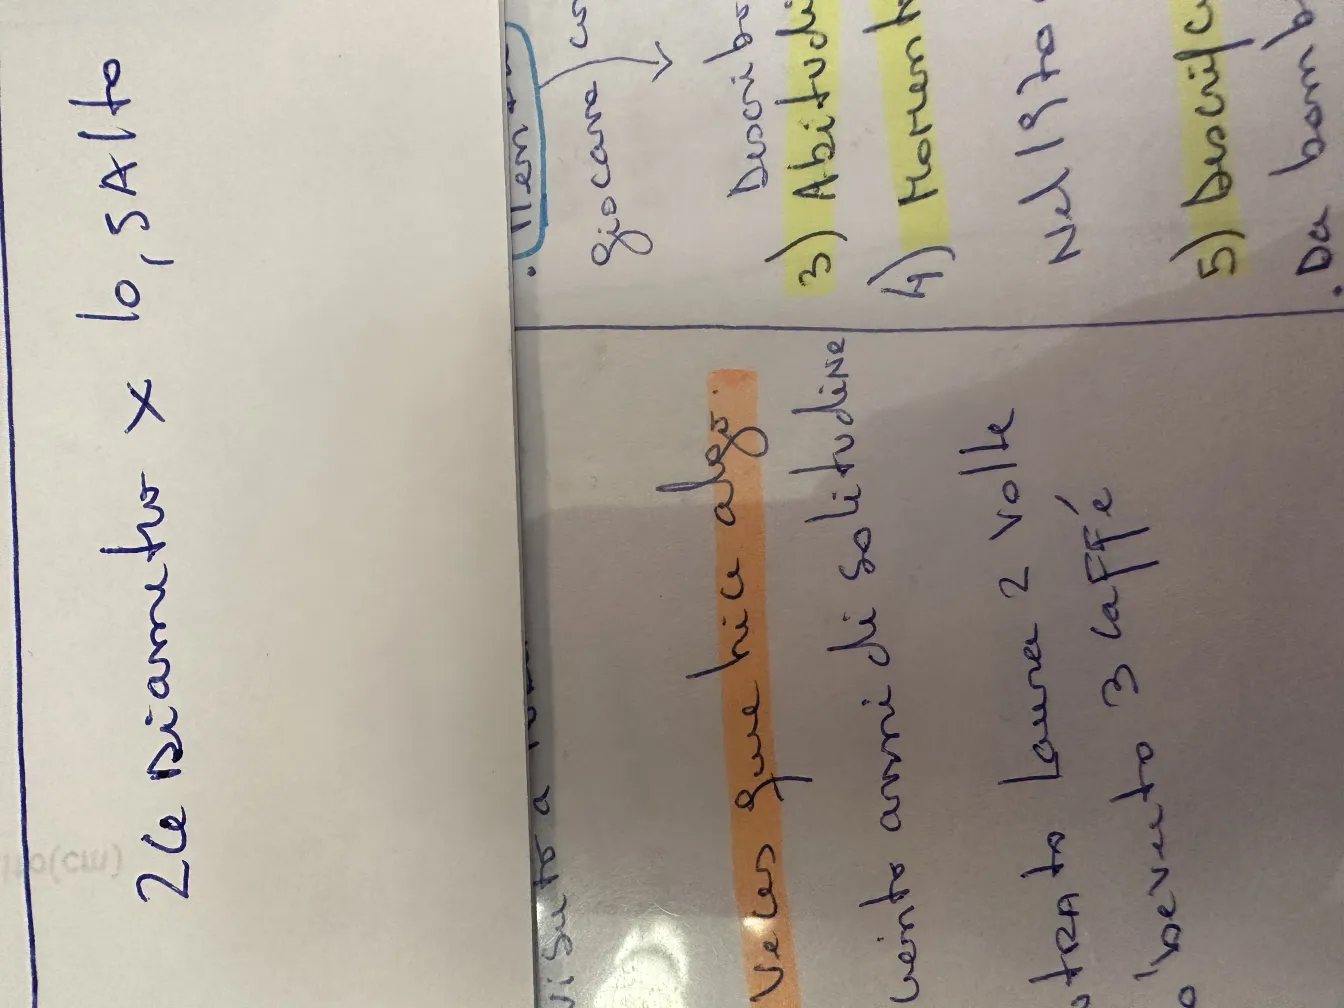 26 Diametro x 10,5 Alto
visuto a
Veces que hice algo.
cento anni di solitudine
Laura 2 volte
bevuto 3 caffé
giocare
3) Abitudi
4) Moment
Nel 19
5) Descri
. Da bamb